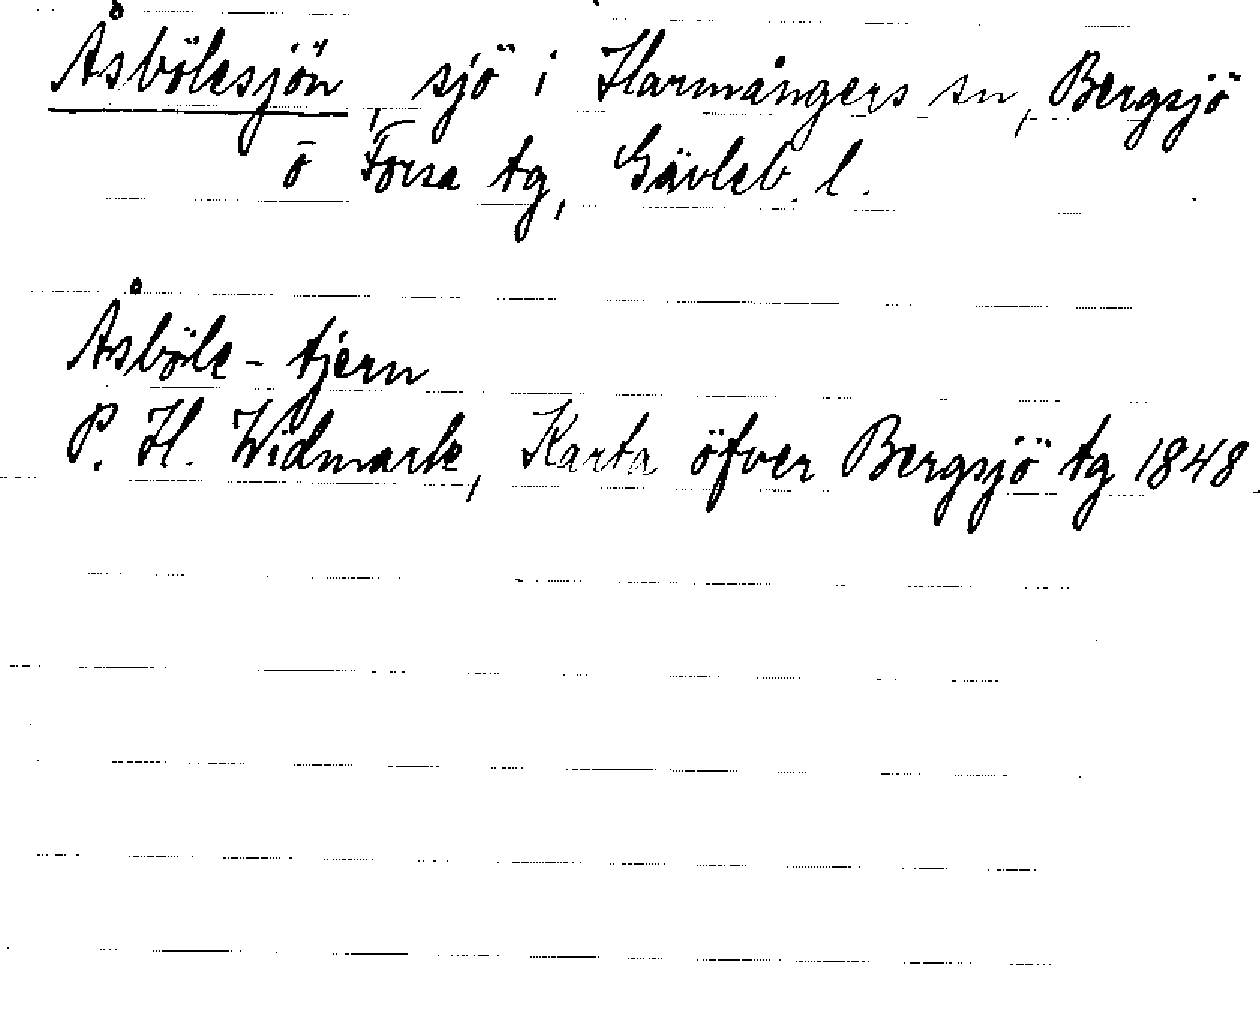 Åsbölesjön, sjö i Harmångers sn, Bergsjö
o Forsa tg, Gävleb. l.
Åsböle-tjern
P. H. Widmark, Karta öfver Bergsjö tg 1848.